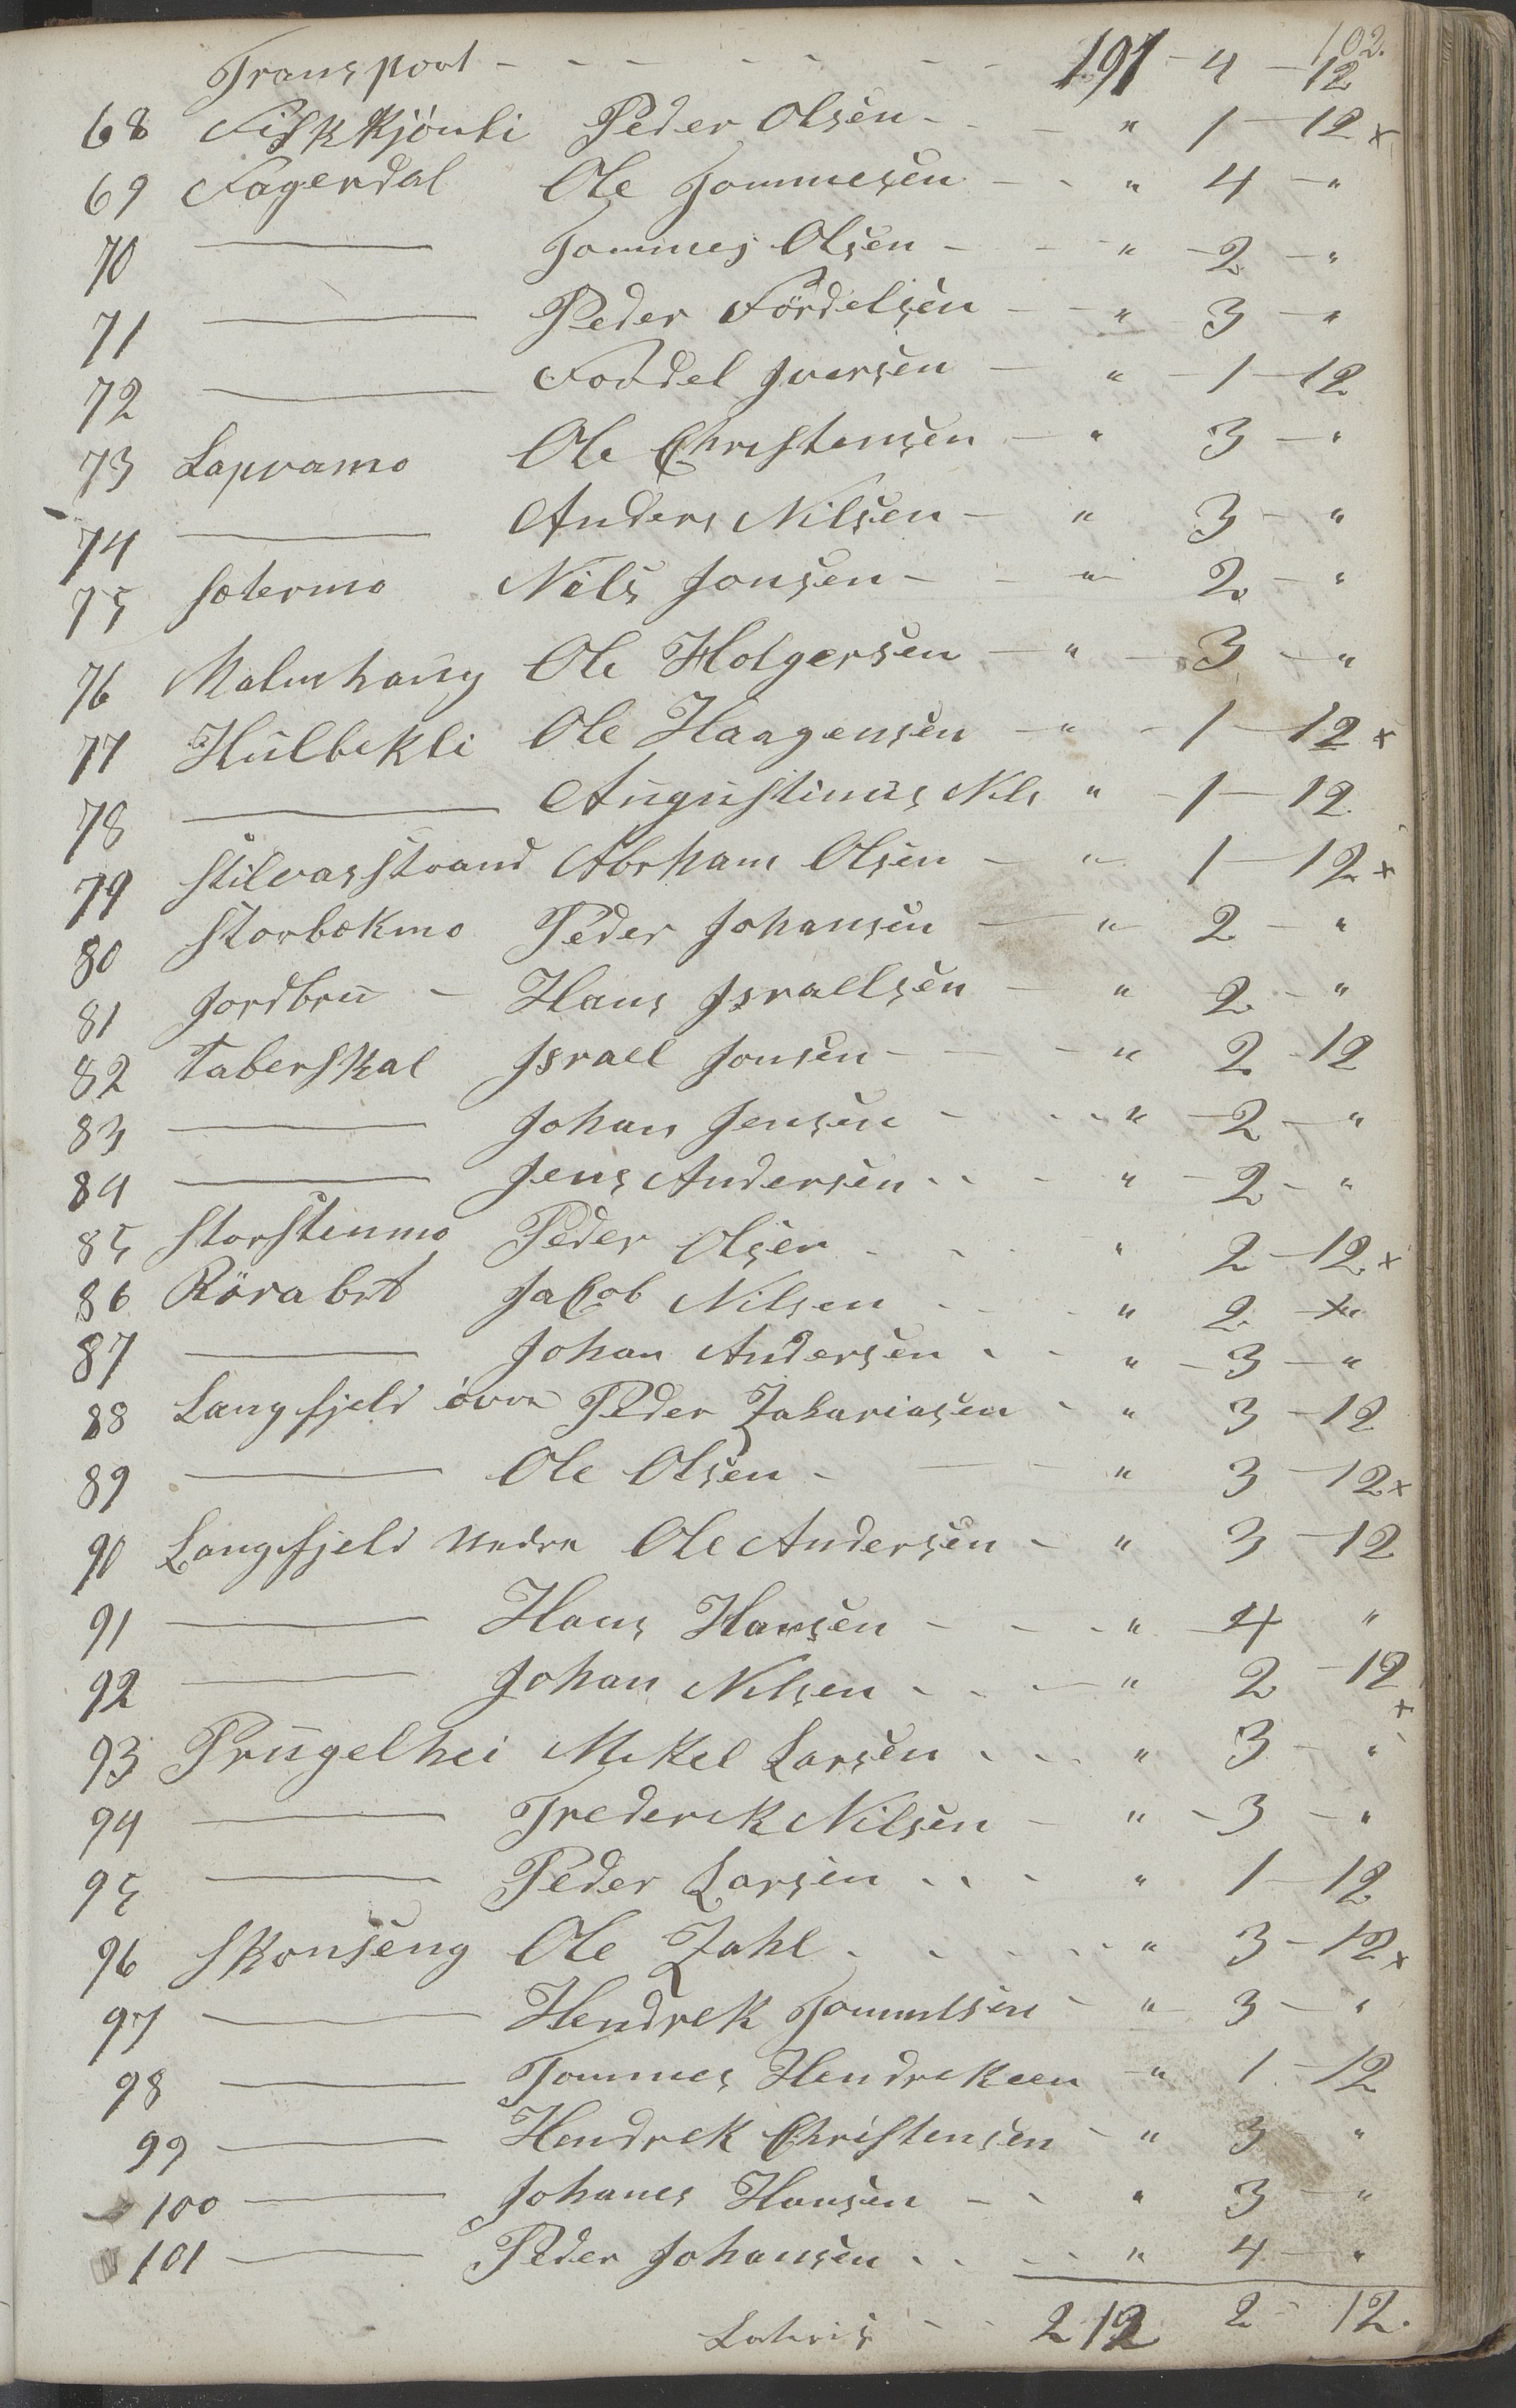 102.
Transport - - - - - - - 197 - 4 - 12
68 Fiskkjönli Peder Olsen - - " 1 - 12 x
69 Fagerdal Ole Tommesen - - " 4 - "
70 ——— Tommes Olsen - - " - 2 - "
71 ——— Peder Fördelsen - - " 3 - "
72 ——— Foddel Iversen - " - 1 - 12
73 Lapramo Ole Christensen - " 3 - "
74 ——— Anders Nilsen - " 3 - "
75 Sætermo Nils Jonsen - - " - 2 - "
76 Malmhaug Ole Holgersen - " - 3 - "
77 Hulbekli Ole Haagensen - " - 1 - 12 x
78 ——— Augustinus Nils " - 1 - 12
79 Stilvasstrand Abrham Olsen - " - 1 - 12 x
80 Storbekmo Peder Johansen - " - 2 - "
81 Jordbru - Hans Israelsen - " - 2 - "
82 Taberskal Israel Jonsen - - - " 2 - 12
83 ——— Johan Jensen - - - " - 2 - "
84 ——— Jens Andersen - - - " - 2 - "
85 Storstenmo Peder Olsen - - - " 2 - 12 x
86 Rörabet Jacob Nilsen - - - " 2 - x "
87 ——— Johan Andersen - - " - 3 - "
88 Langfjeld övre Peder Zakariasen - " 3 - 12
89 ——— Ole Olsen - — - " 3 - 12 x
90 Langfjeld Nedre Ole Andersen - " 3 - 12
91 ——— Hans Hansen - - - " - 4 "
92 ——— Johan Nilsen - - - " 2 - 12 x
93 Prügelhei Mikel Larsen - - - " 3 - "
94 ——— Frederik Nilsen - " - 3 - "
95 ——— Peder Larsen - - - " 1 - 12
96 Skonseng Ole Zahl - - - - - " 3 - 12 x
97 ——— Hendrek Tommesen - " 3 - "
98 ——— Tommes Hendreksen - " 1 - 12
99 ——— Hendrek Christensen - " 3 "
100 ——— Johanes Hansen - - " 3 - "
101 ——— Peder Johansen - - - " 4 - "
Lateris - - 212 2 - 12.